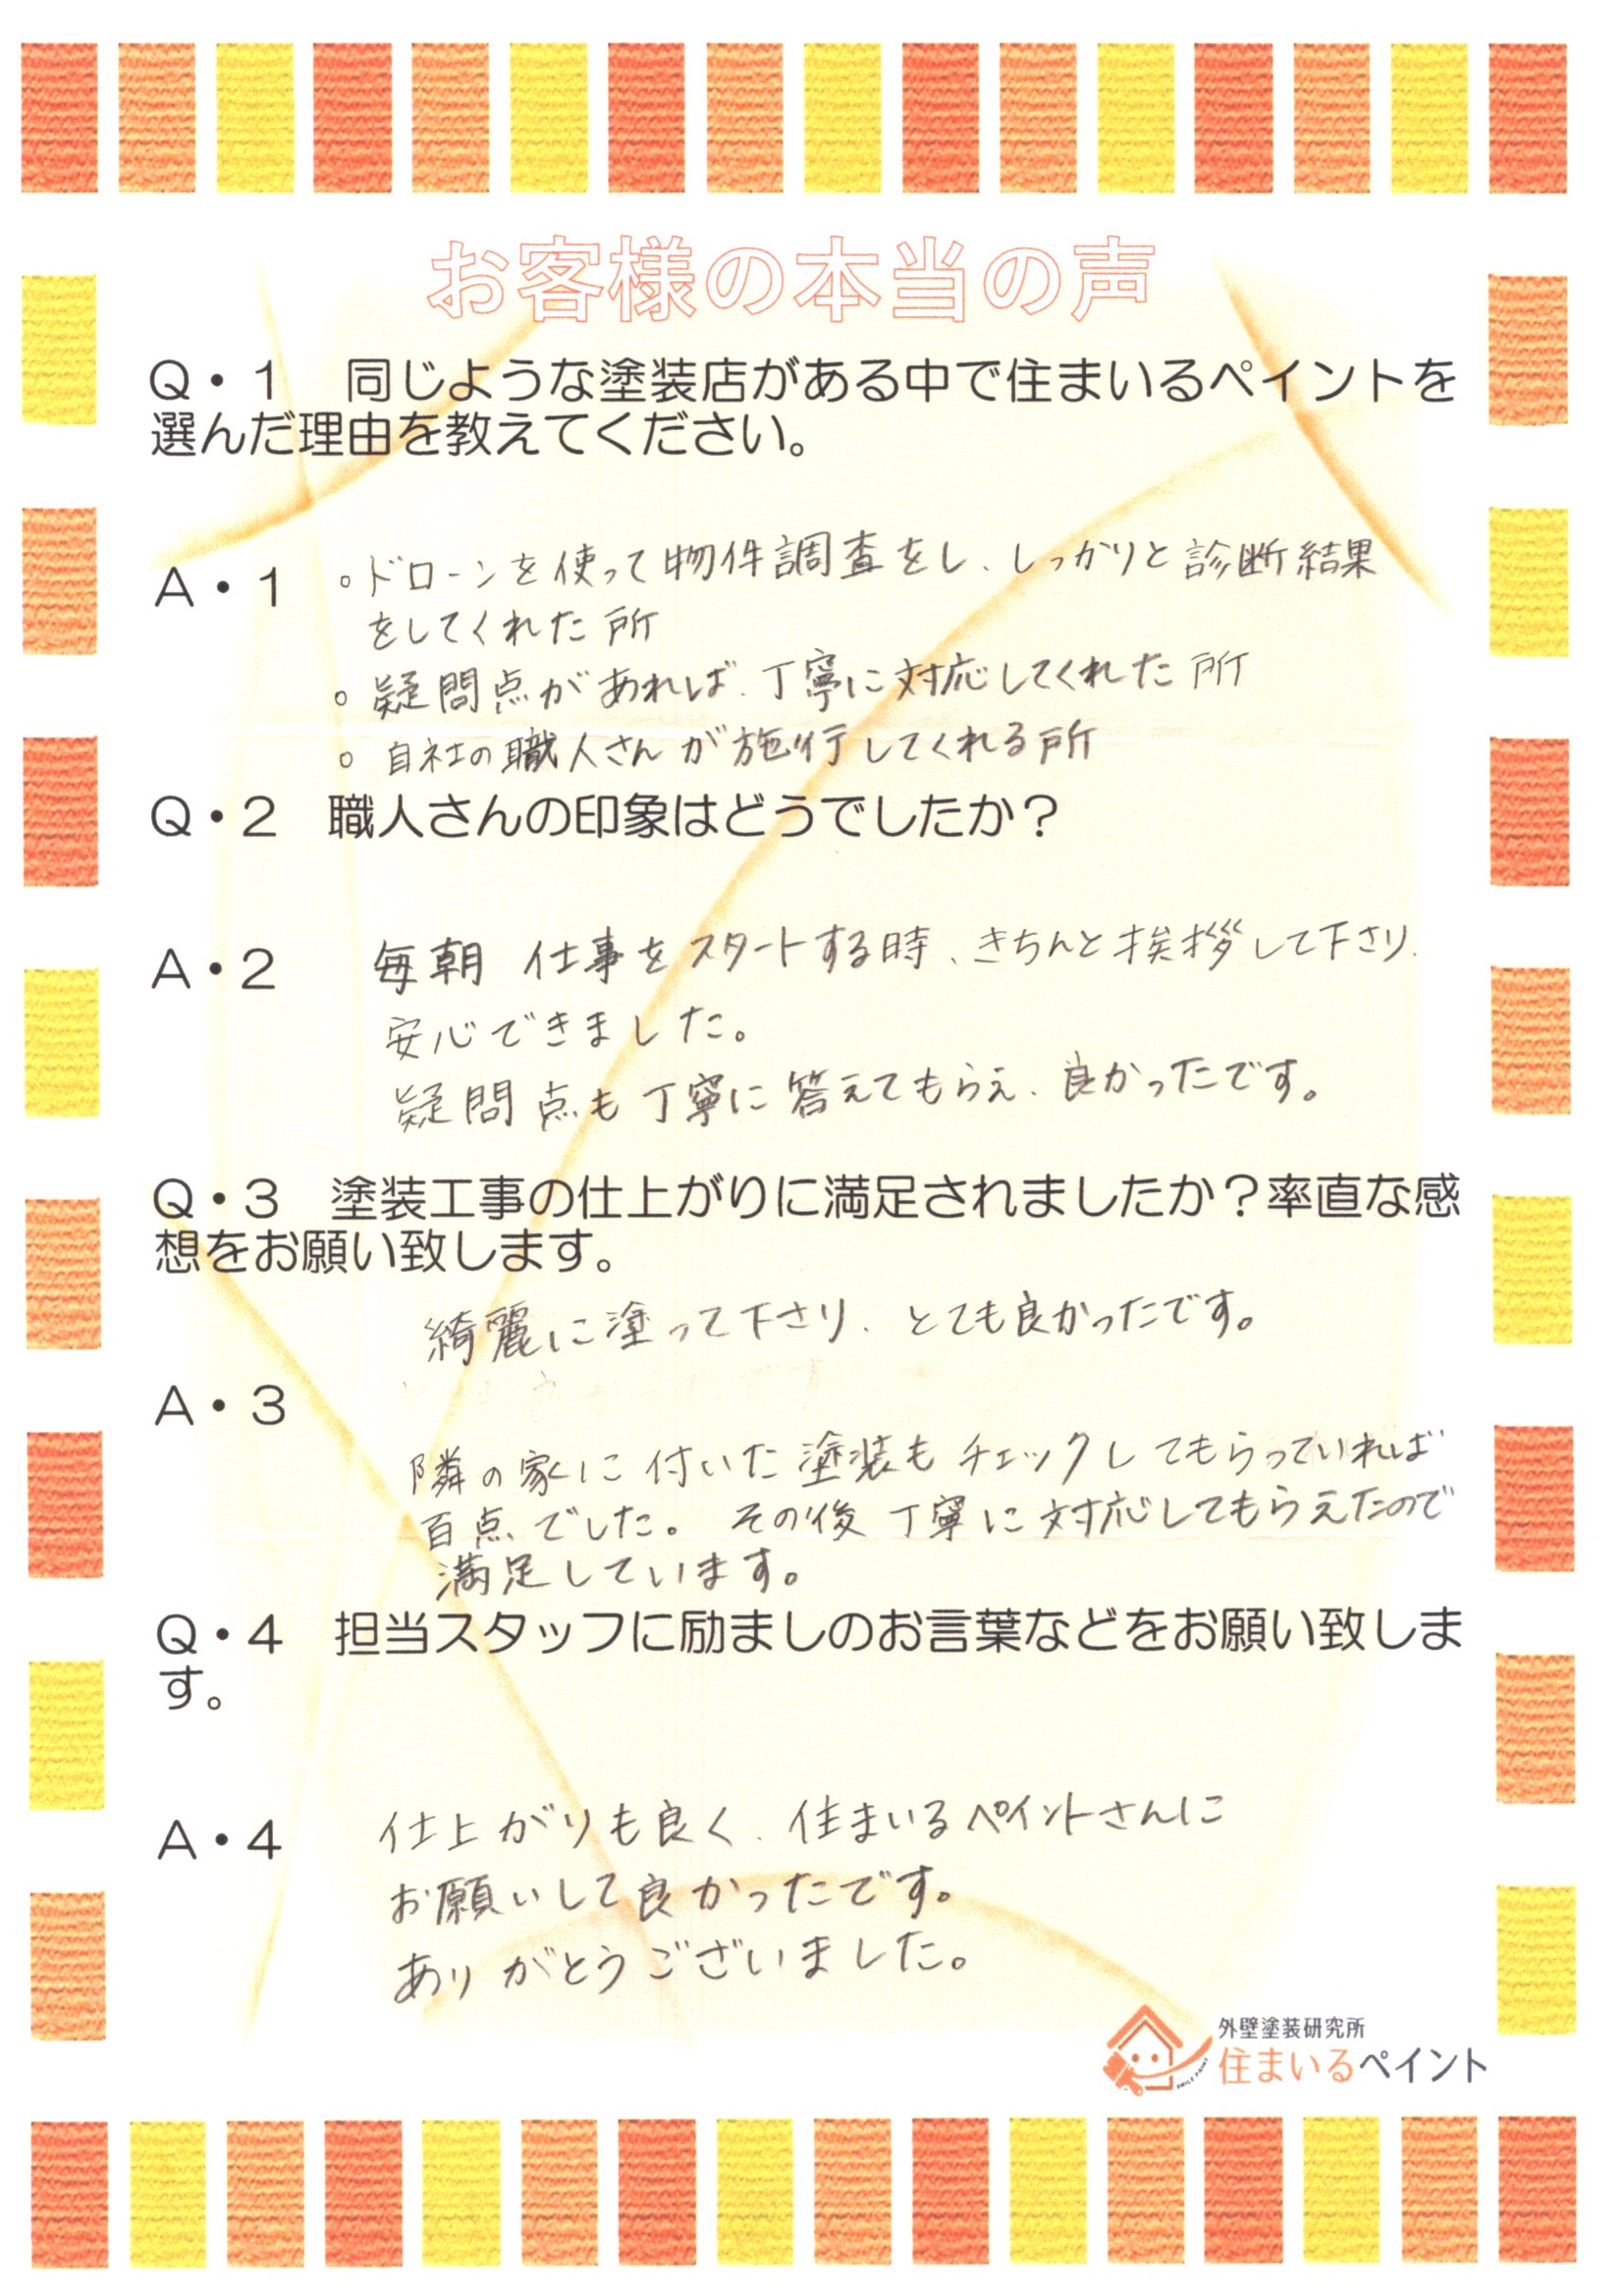 お客様の本当の声
Q・1　同じような塗装店がある中で住まいるペイントを
選んだ理由を教えてください。
A・1 ○ドローンを使って物件調査をし、しっかりと診断結果
をしてくれた所
○疑問点があれば、丁寧に対応してくれた所
○自社の職人さんが施行してくれる所
Q・2　職人さんの印象はどうでしたか？
A・2 毎朝 仕事をスタートする時、きちんと挨拶して下さり、
安心できました。
疑問点も丁寧に答えてもらえ、良かったです。
Q・3　塗装工事の仕上がりに満足されましたか？率直な感
想をお願い致します。
綺麗に塗って下さり、とても良かったです。
A・3
隣の家に付いた塗装もチェックしてもらっていれば
百点でした。その後丁寧に対応してもらえたので
満足しています。
Q・4　担当スタッフに励ましのお言葉などをお願い致しま
す。
A・4 仕上がりも良く、住まいるペイントさんに
お願いして良かったです。
ありがとうございました。
外壁塗装研究所
住まいるペイント